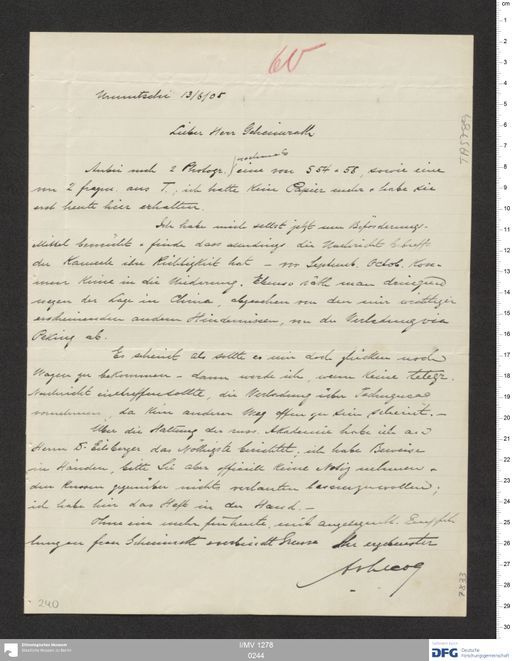 6V
Urumtschi 13/6/05
Lieber Herr Geheimrath
Anbei noch 2 Photogr. nochmals eine von S 54 + 56, sowie eine
von 2 fragm. aus T.; ich hatte kein Papier mehr + habe die
erst heute hier erhalten.
Ich habe mich selbst jetzt um Beförderungs-
Mittel bemüht + finde dass allerdings die Nachricht betreff
der Kameele ihre Richtigkeit hat – vor Septemb. Octob. kom-
men keine in die Niederung. Ebenso räth man dringend
wegen der Lage in China, abgesehen von den mir wichtiger
erscheinenden anderen Hindernissen, von der Verladung via
Peking ab.
Es scheint als sollte es mir doch glücken noch
Wagen zu bekommen – dann werde ich, wenn keine telegr.
Nachricht eintreffen sollte, die Verladung über Tschugutschak
vornehmen, da kein anderer Weg offen zu sein scheint. –
Über die Haltung der russ. Akademie habe ich an
Herrn Dr. das Nöthigste berichtet; ich habe Beweise
in Händen, bitte Sie aber officiell keine Notiz nehmen +
den Russen gegenüber nichts verlauten lassen zu wollen;
ich habe hier das Heft in der Hand. –
Ohne ein mehr für heute, mit angelegentl. Empfeh
lungen Frau Geheimrath verbindl. Grüsse Ihr ergebenster
A v Lecoq
TA 5789
7833
240
Ethnologisches Museum
Staatliche Museen zu Berlin
I/MV 1278
0244
DFG Deutsche
Forschungsgemeinschaft
cm
1
2
3
4
5
6
7
8
9
10
11
12
13
14
15
16
17
18
19
20
21
22
23
24
25
26
27
28
29
30